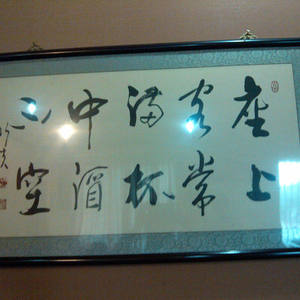 座上
客常
满杯
中酒
不空